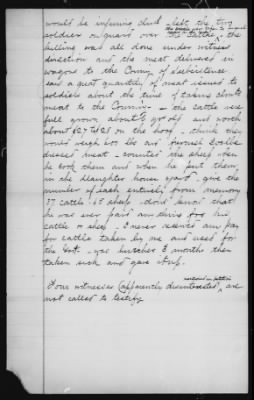 would be infirming clerk - left the two
soldier on guard over the cattle, the
killing was all done under witness
direction and the meat delivered in
wagons to the Comy of Subsistence
said a great quantity of meat issued to
soldiers about the time of taking
meat to the Comy - The cattle were
full grown about 4 yrs old and worth
about $27 to 28 on the hoof, think they
would weigh 600 lbs and furnish
dressed meat - counted the sheep when
he took them and when he put them
in the slaughter house yard, give the
number of each entirely from memory
37 cattle - sheep, dont know that
he was ever paid any thing for his
cattle or sheep. I never received any pay
for cattle taken by me and used for
the Govt - was butcher 8 months then
taken sick and gave it up.
Four witnesses (apparently disinterested) are
not called to testify.